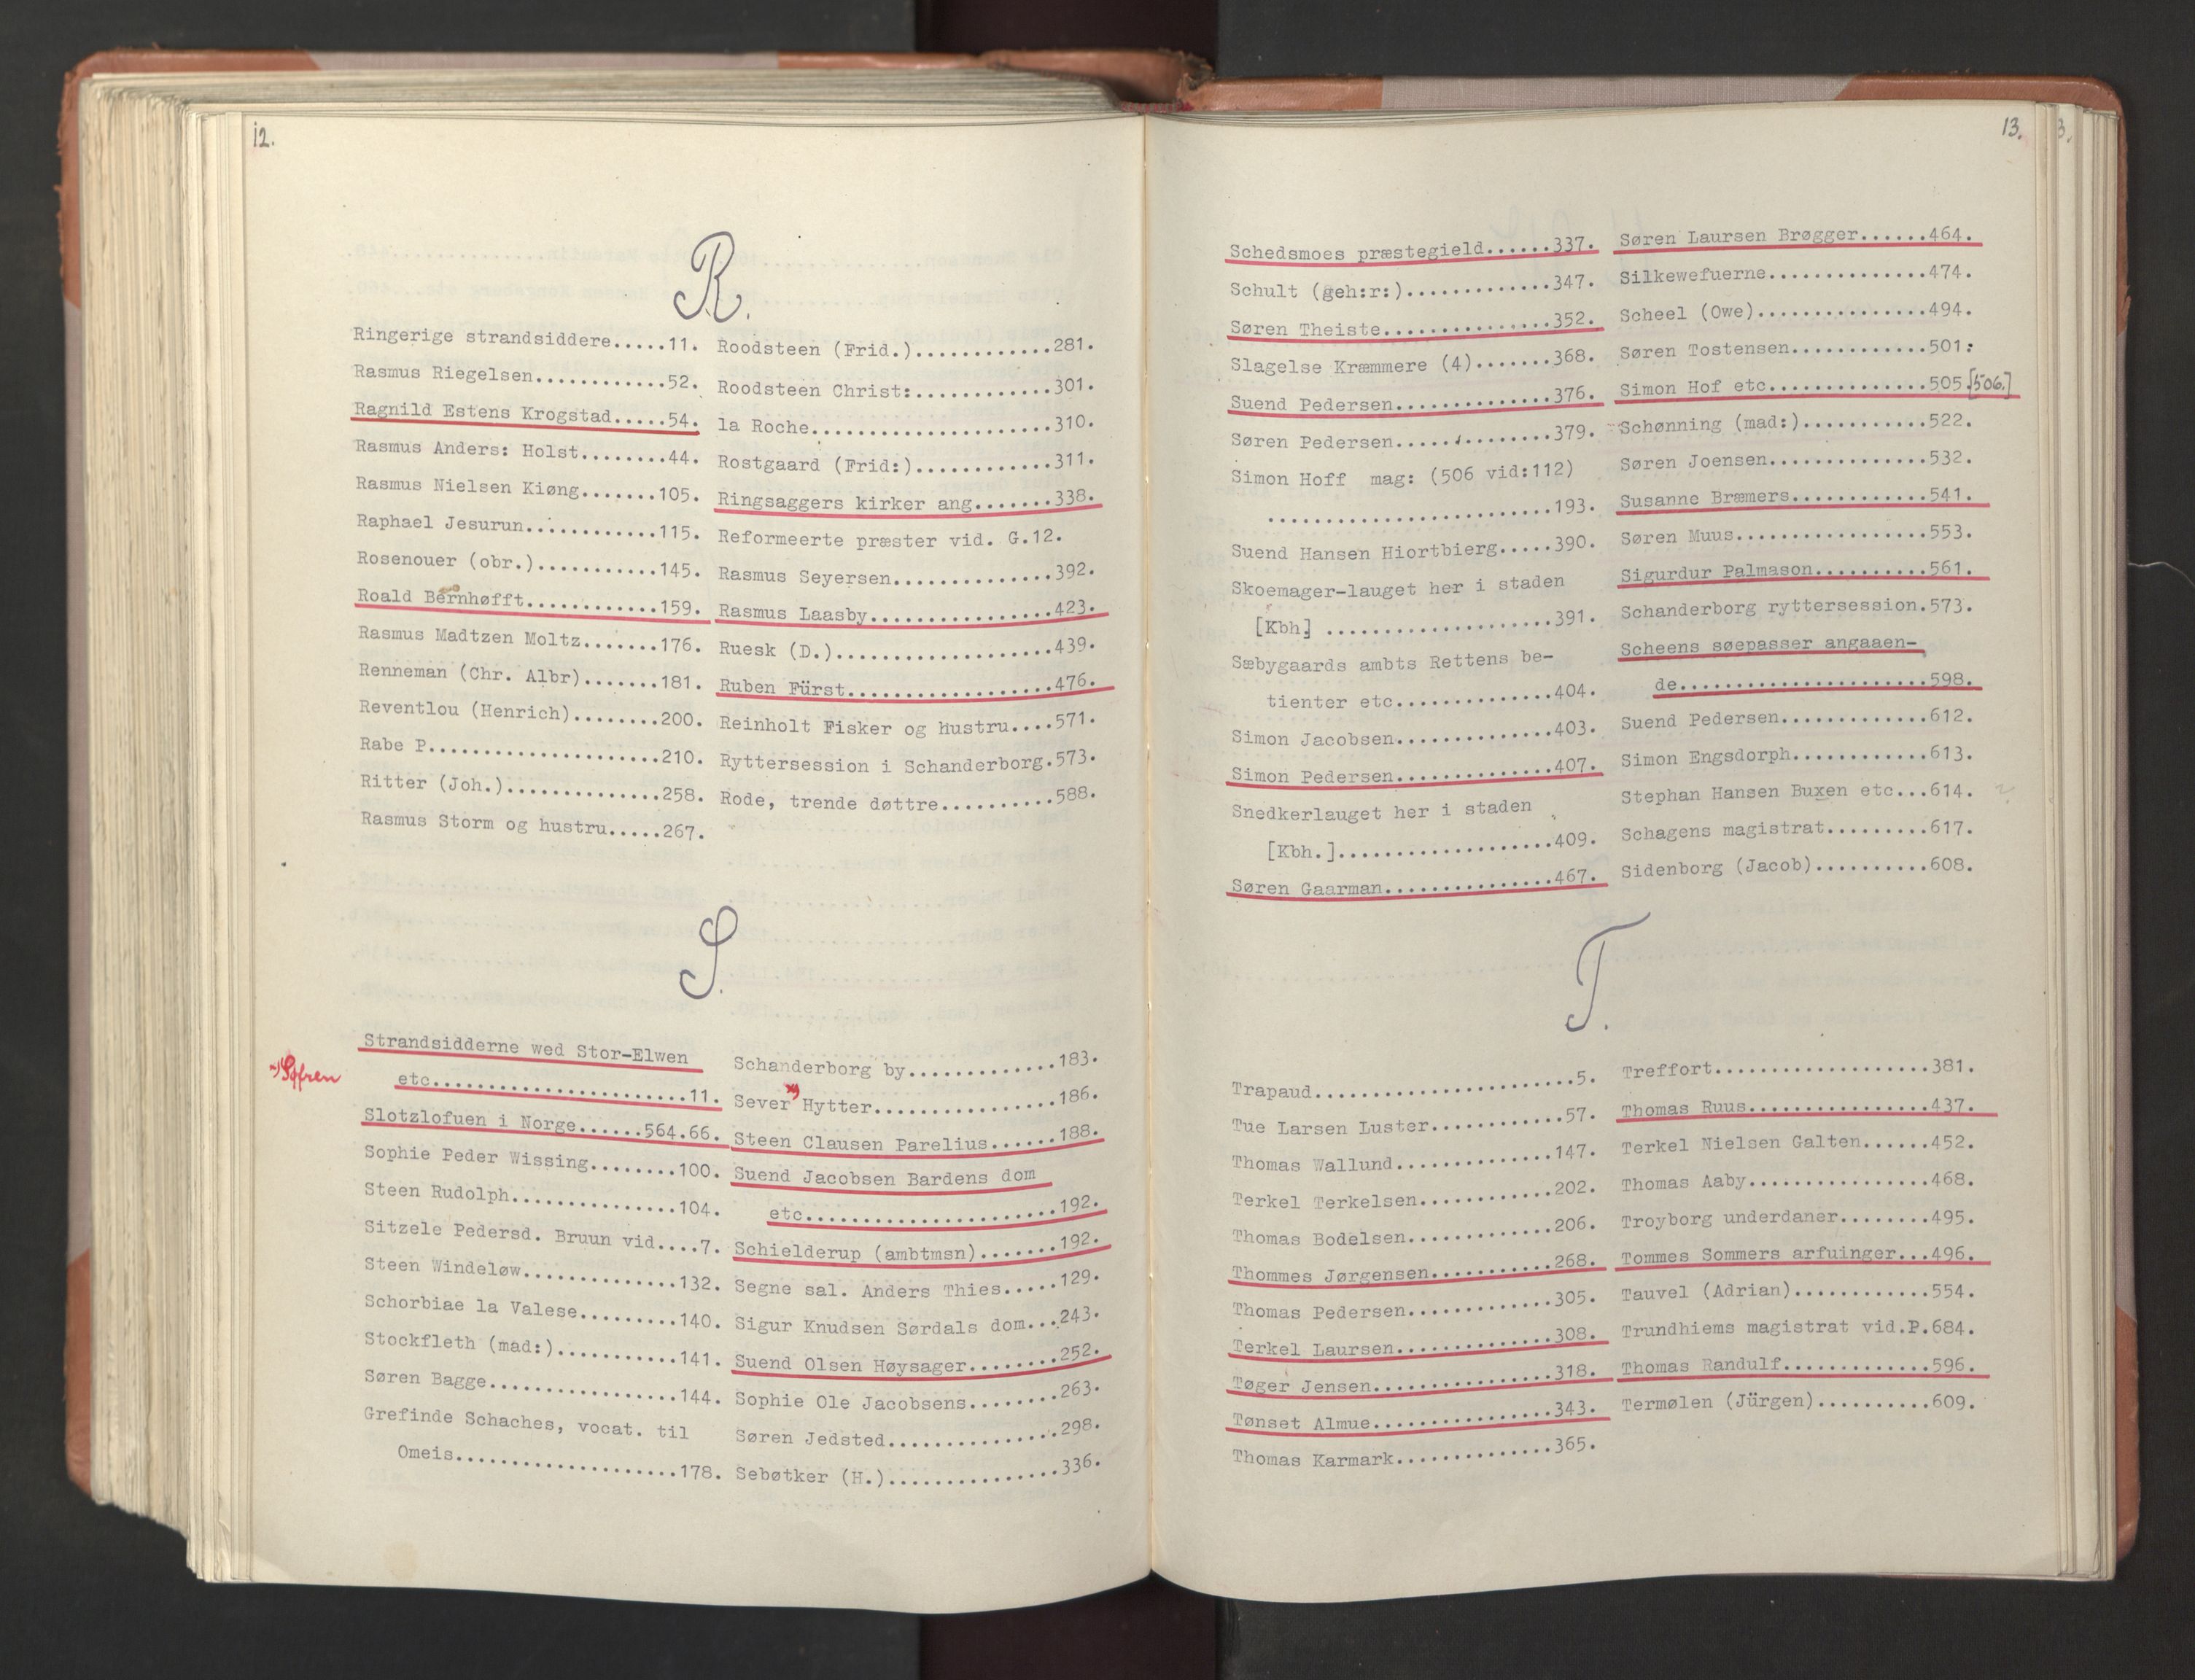 12.
R.
Ringerige strandsiddere.....11.
Rasmus Riegelsen............52.
Ragnild Estens Krogstad.....54.
Rasmus Anders: Holst........44.
Rasmus Nielsen Kiøng.......105.
Raphael Jesurun............115.
Rosenouer (obr.)...........145.
Roald Bernhøfft............159.
Rasmus Madtzen Moltz.......176.
Renneman (Chr. Albr).......181.
Reventlou (Henrich)........200.
Rabe P.....................210.
Ritter (Joh.)..............258.
Rasmus Storm og hustru.....267.
Roodsteen (Frid.)............281.
Roodsteen Christ:............301.
la Roche.....................310.
Rostgaard (Frid:)............311.
Ringsaggers kirker ang.......338.
Reformeerte præster vid. G.12.
Rasmus Seyersen..............392.
Rasmus Laasby................423.
Ruesk (D.)...................439.
Ruben Fürst..................476.
Reinholt Fisker og Hustru....571.
Ryttersession i Schanderborg.573.
Rode, trende døttre..........588.
S.
Strandsidderne wed Stor-Elwen
etc......................11.
Slotzlofuen i Norge......564.66.
Sophie Peder Wissing........100.
Steen Rudolph...............104.
Sitzele Pedersd. Bruun vid....7.
Steen Windeløw..............132.
Schorbiae la Valese.........140.
Stockfleth (mad:)...........141.
Søren Bagge.................144.
Grefinde Schaches, vocat. til
Omeis....................178.
x) Søfren
Schanderborg by.............183.
Sever x) Hytter................186.
Steen Clausen Parelius......188.
Suend Jacobsen Bardens dom
etc......................192.
Schielderup (ambtmsn).......192.
Segne sal. Anders Thies.....129.
Sigur Knudsen Sørdals dom...243.
Suend Olsen Høysager........252.
Sophie Ole Jacobsens........263.
Søren Jedsted...............298.
Sebøtker (H.)...............336.
13.
3.
Schedsmoes præstegield......337.
Schult (geh:r:).............347.
Søren Theiste...............352.
Slagelse Kræmmere (4).......368.
Suend Pedersen..............376.
Søren Pedersen..............379.
Simon Hoff  mag: (506 vid:112)
.........................193.
Suend Hansen Hiortbierg.....390.
Skoemager-lauget her i staden
[Kbh] ....................391.
Sæbygaards ambts Rettens be-
tienter etc..............404.
Simon Jacobsen..............403.
Simon Pedersen..............407.
Snedkerlauget her i staden
[Kbh.]...................409.
Søren Gaarman...............467.
Søren Laursen Brøgger......464.
Silkewefuerne..............474.
Scheel (Owe)...............494.
Søren Tostensen............501.
Simon Hof etc..............505.[506.]
Schønning (mad:)...........522.
Søren Joensen..............532.
Susanne Bræmers............541.
Søren Muus.................553.
Sigurdur Palmason..........561.
Schanderborg ryttersession.573.
Scheens søepasser angaaen-
de......................598.
Suend Pedersen.............612.
Simon Engsdorph............613.
Stephan Hansen Buxen etc...614.
Schagens magistrat.........617.
Sidenborg (Jacob)..........608.
T.
Trapaud.......................5.
Tue Larsen Luster............57.
Thomas Wallund..............147.
Terkel Terkelsen............202.
Thomas Bodelsen.............206.
Thommes Jørgensen...........268.
Thomas Pedersen.............305.
Terkel Laursen..............308.
Tøger Jensen................318.
Tønset Almue................343.
Thomas Karmark..............365.
Treffort...................381.
Thomas Ruus................437.
Terkel Nielsen Galten......452.
Thomas Aaby................468.
Troyborg underdaner........495.
Tommes Sommers arfuinger...496.
Tauvel (Adrian)............554.
Trundhiems magistrat vid.P.684.
Thomas Randulf.............596.
Termølen (Jürgen)..........609.